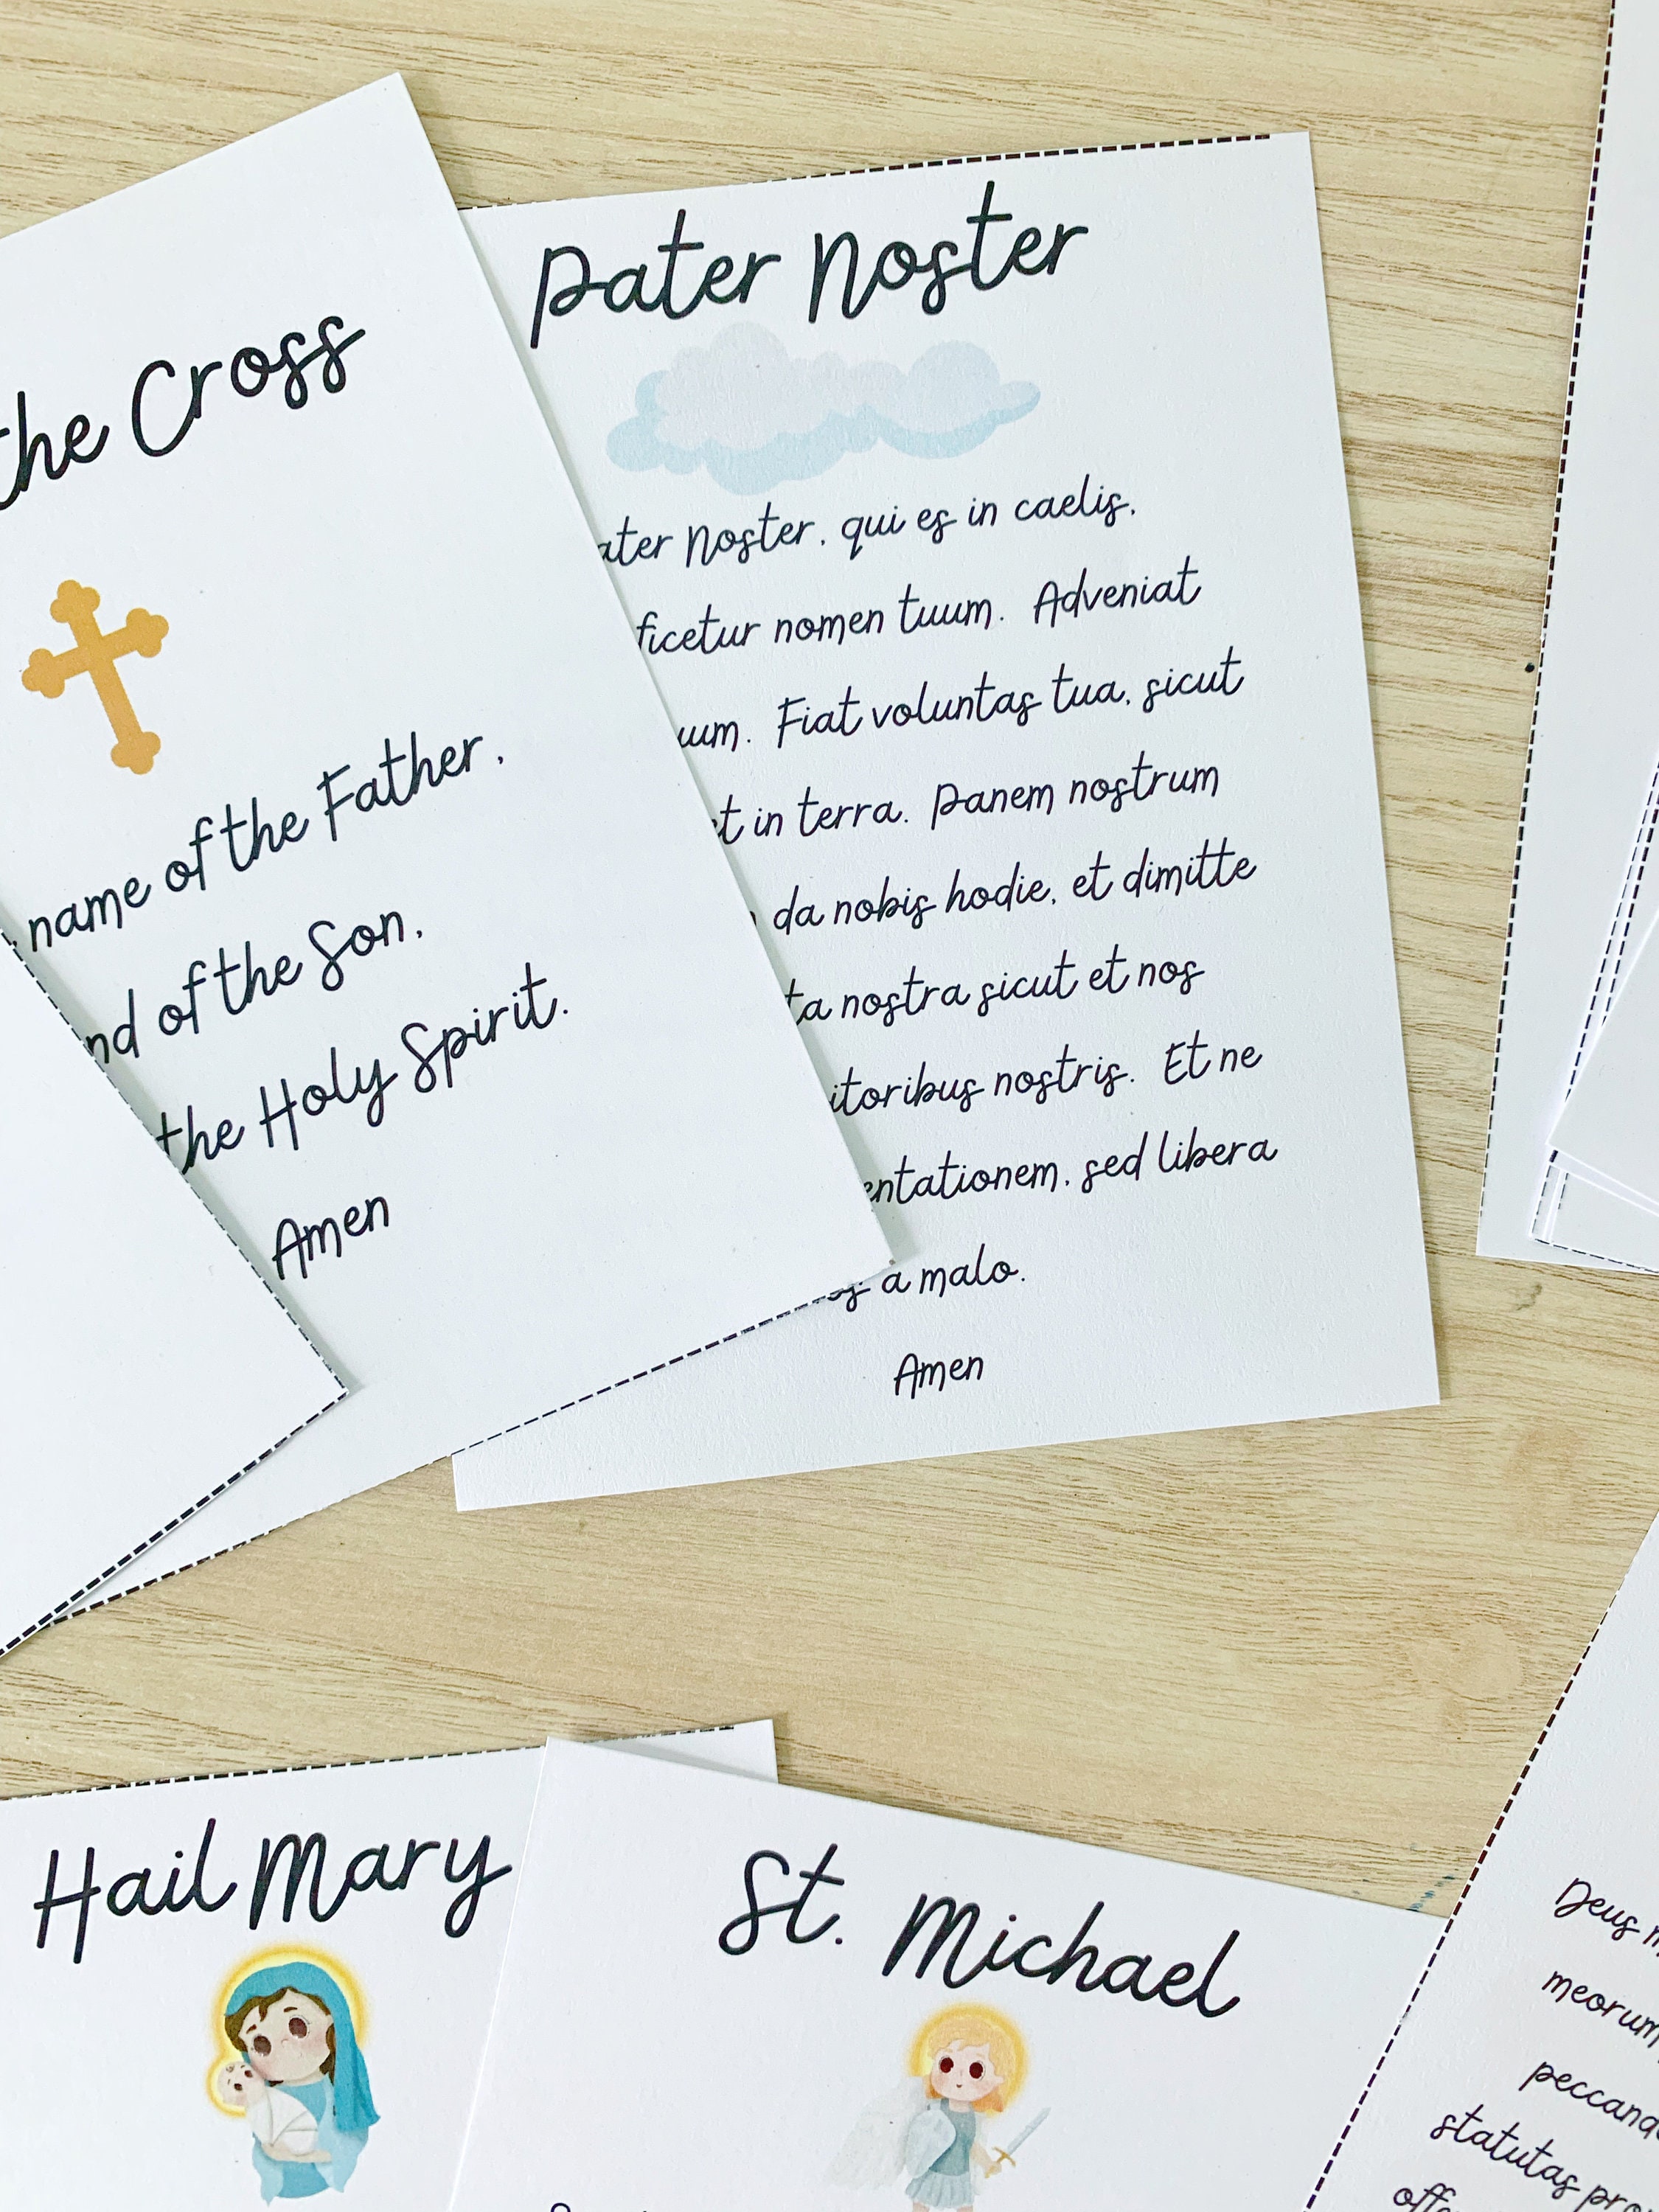 the Cross
name of the Father,
of the Son,
the Holy Spirit.
Amen
Pater Noster
Noster, qui es in caelis,
nomen tuum. Adveniat
Fiat voluntas tua, sicut
in terra. Panem nostrum
da nobis hodie, et dimitte
nostra sicut et nos
nostris. Et ne
sed libera
a malo.
Amen
Hail Mary
St. Michael
Deus
meorum
statutas